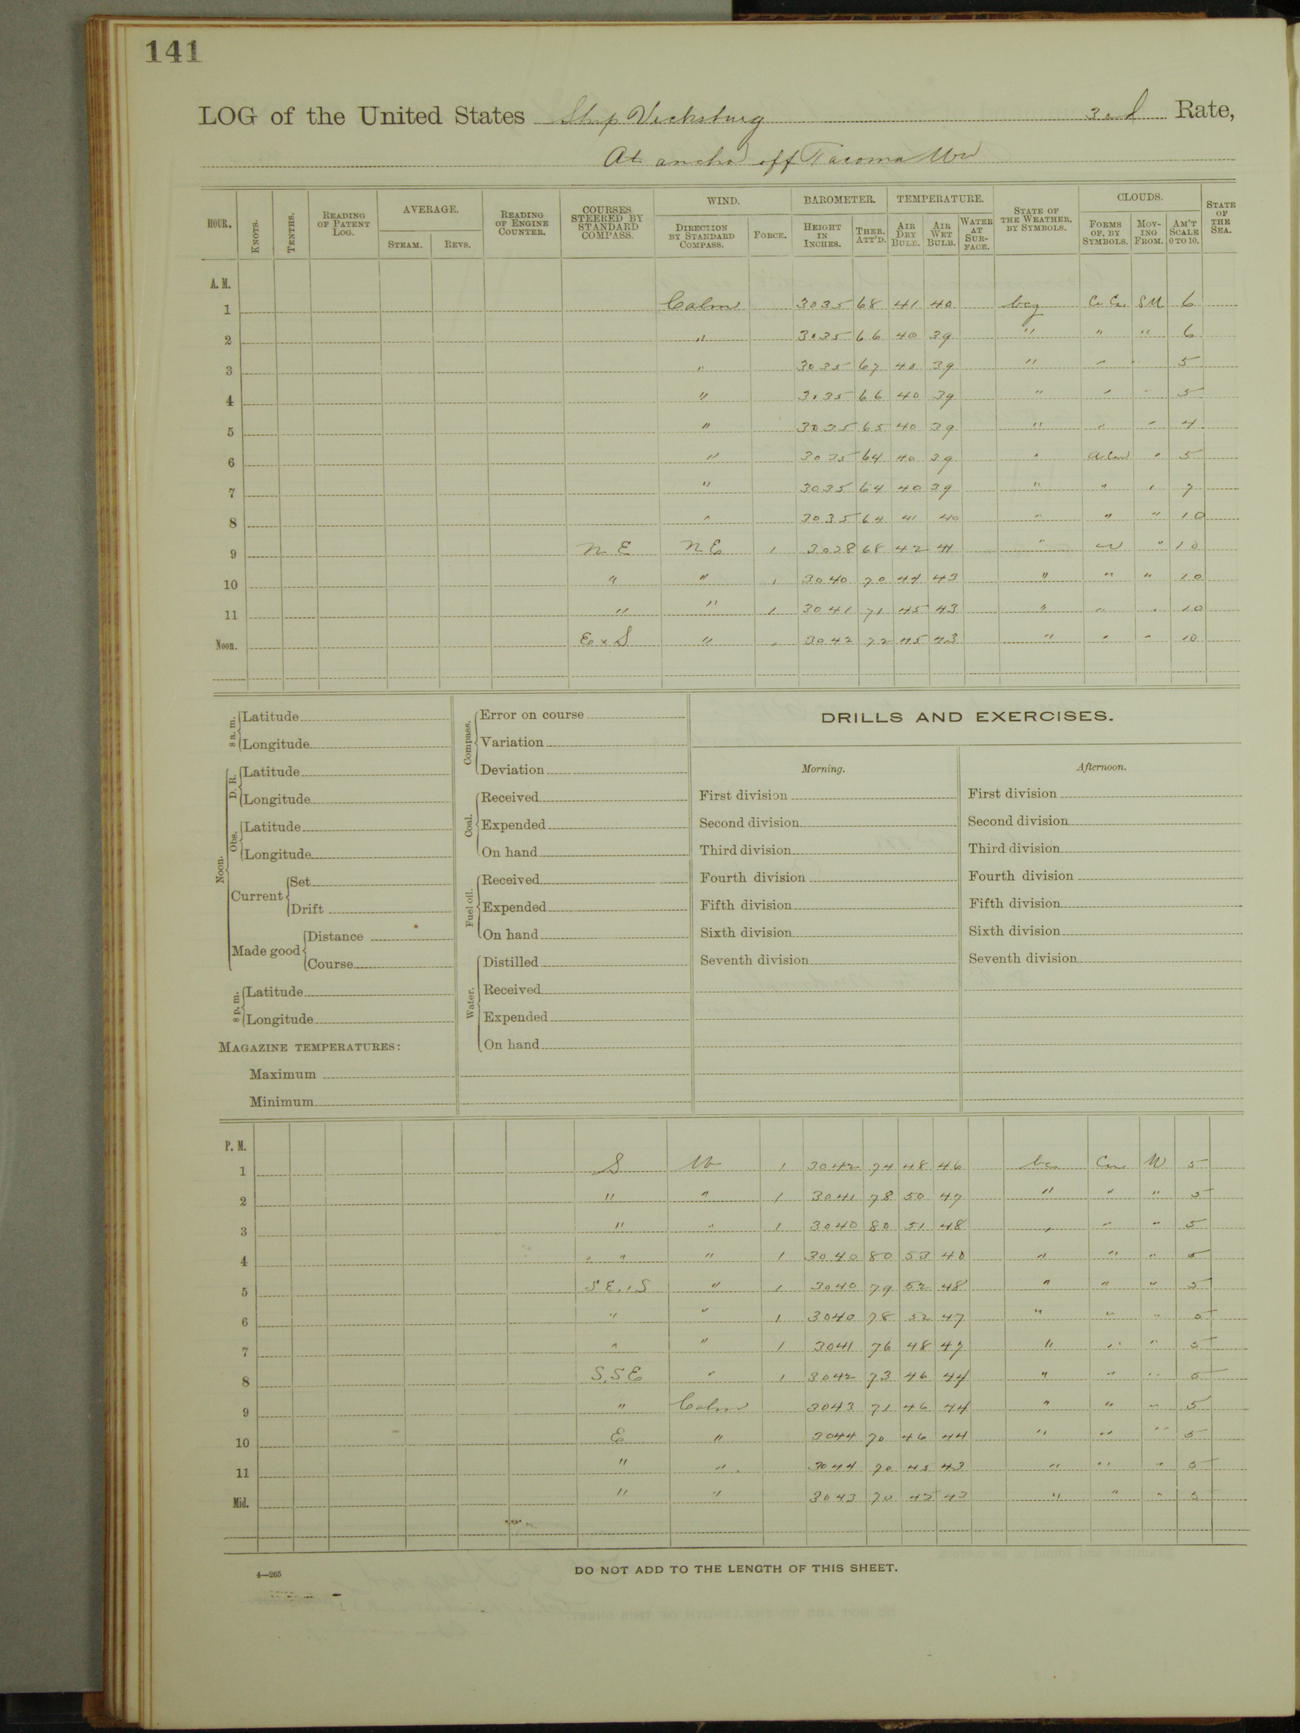 141
LOG of the United States Ship Vicksburg 3rd Rate,
At anchor off Tacoma Wn
HOUR. KNOTS. TENTHS. READING OF PATENT LOG. AVERAGE. STEAM. REVS. READING OF ENGINE COUNTER. COURSES STEERED BY STANDARD COMPASS. WIND. DIRECTION BY STANDARD COMPASS. FORCE. BAROMETER. HEIGHT IN INCHES. THER. ATT'D. TEMPERATURE. AIR DRY BULB. AIR WET BULB. WATER AT SURFACE. STATE OF THE WEATHER, BY SYMBOLS. CLOUDS. FORMS OF, BY SYMBOLS. MOVING FROM. AM'T SCALE 0 TO 10. STATE OF THE SEA.
A. M.
1 Calm 3035 68 41 40 bcg 6
2 " 3035 66 40 39 " " " 6
3 " 3035 67 40 39 " " 5
4 " 3035 66 40 39 " " " 5
5 " 3035 65 40 39 " " " 4
6 " 3035 64 40 39 " " 5
7 " 3035 64 40 39 " " " 7
8 " 3035 64 41 40 " " " 10
9 NE NE 1 3038 68 42 41 " " 10
10 " " 1 3040 70 44 43 " " " 10
11 " " 1 3041 71 45 43 " " " 10
Noon. ExS " 3042 72 45 43 " " " 10
8 a. m. Latitude
Longitude
Noon. D. R. Latitude
Longitude
Obs. Latitude
Longitude
Current Set
Drift
Made good Distance
Course
8 p. m. Latitude
Longitude
MAGAZINE TEMPERATURES:
Maximum
Minimum
Compass. Error on course
Variation
Deviation
Coal. Received
Expended
On hand
Fuel oil. Received
Expended
On hand
Water. Distilled
Received
Expended
On hand
DRILLS AND EXERCISES.
Morning. Afternoon.
First division First division
Second division Second division
Third division Third division
Fourth division Fourth division
Fifth division Fifth division
Sixth division Sixth division
Seventh division Seventh division
P. M.
1 S W 1 3042 74 48 46 bc Cu W 5
2 " " 1 3041 78 50 47 " " " 5
3 " " 1 3040 80 51 48 " " " 5
4 " " 1 3040 80 53 48 " " " 5
5 " 1 3040 79 52 48 " " " 5
6 " " 1 3040 78 52 47 " " " 5
7 " " 1 3041 76 48 47 " " " 5
8 S.SE " 1 3042 73 46 44 " " " 5
9 " Calm 3043 71 46 44 " " " 5
10 E " 3044 70 46 44 " " " 5
11 " " 3044 70 45 43 " " " 5
Mid. " " 3043 70 45 43 " " " 5
4—265 DO NOT ADD TO THE LENGTH OF THIS SHEET.